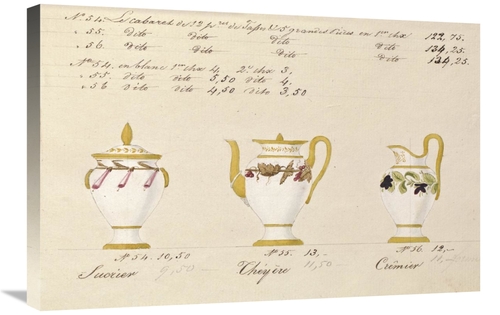 No. 54. Le cabaret de 22 p.ces de Tasses & 5 grandes Pièces en 1er chx 122,75.
" 55. Dito Dito Dito Dito 134,25.
" 56. Dito Dito Dito Dito 134,25.
No. 54. en blanc 1er chx 4, 2e chx 3,
" 55. Dito dito 5,50 dito 4.
" 56 dito dito 4,50 dito 3,50
No. 54. 10,50 No. 55. 13,- No. 56. 12,-
Sucrier 9,50 Théyère 11,50 Crêmier